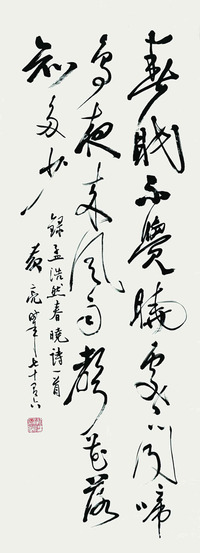 春眠不覺曉處〻聞啼
鳥夜来風雨聲花落
知多少
録孟浩然春曉詩一首
黄亮年七十六